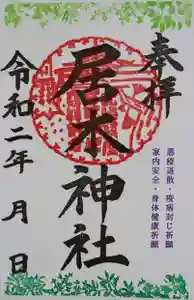 奉拝
悪疫退散・疫病封じ祈願
家内安全・身体健康祈願
居木神社
令和二年 月 日